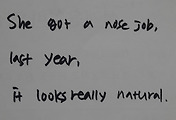 She got a nose job,
last year,
it looks really natural.